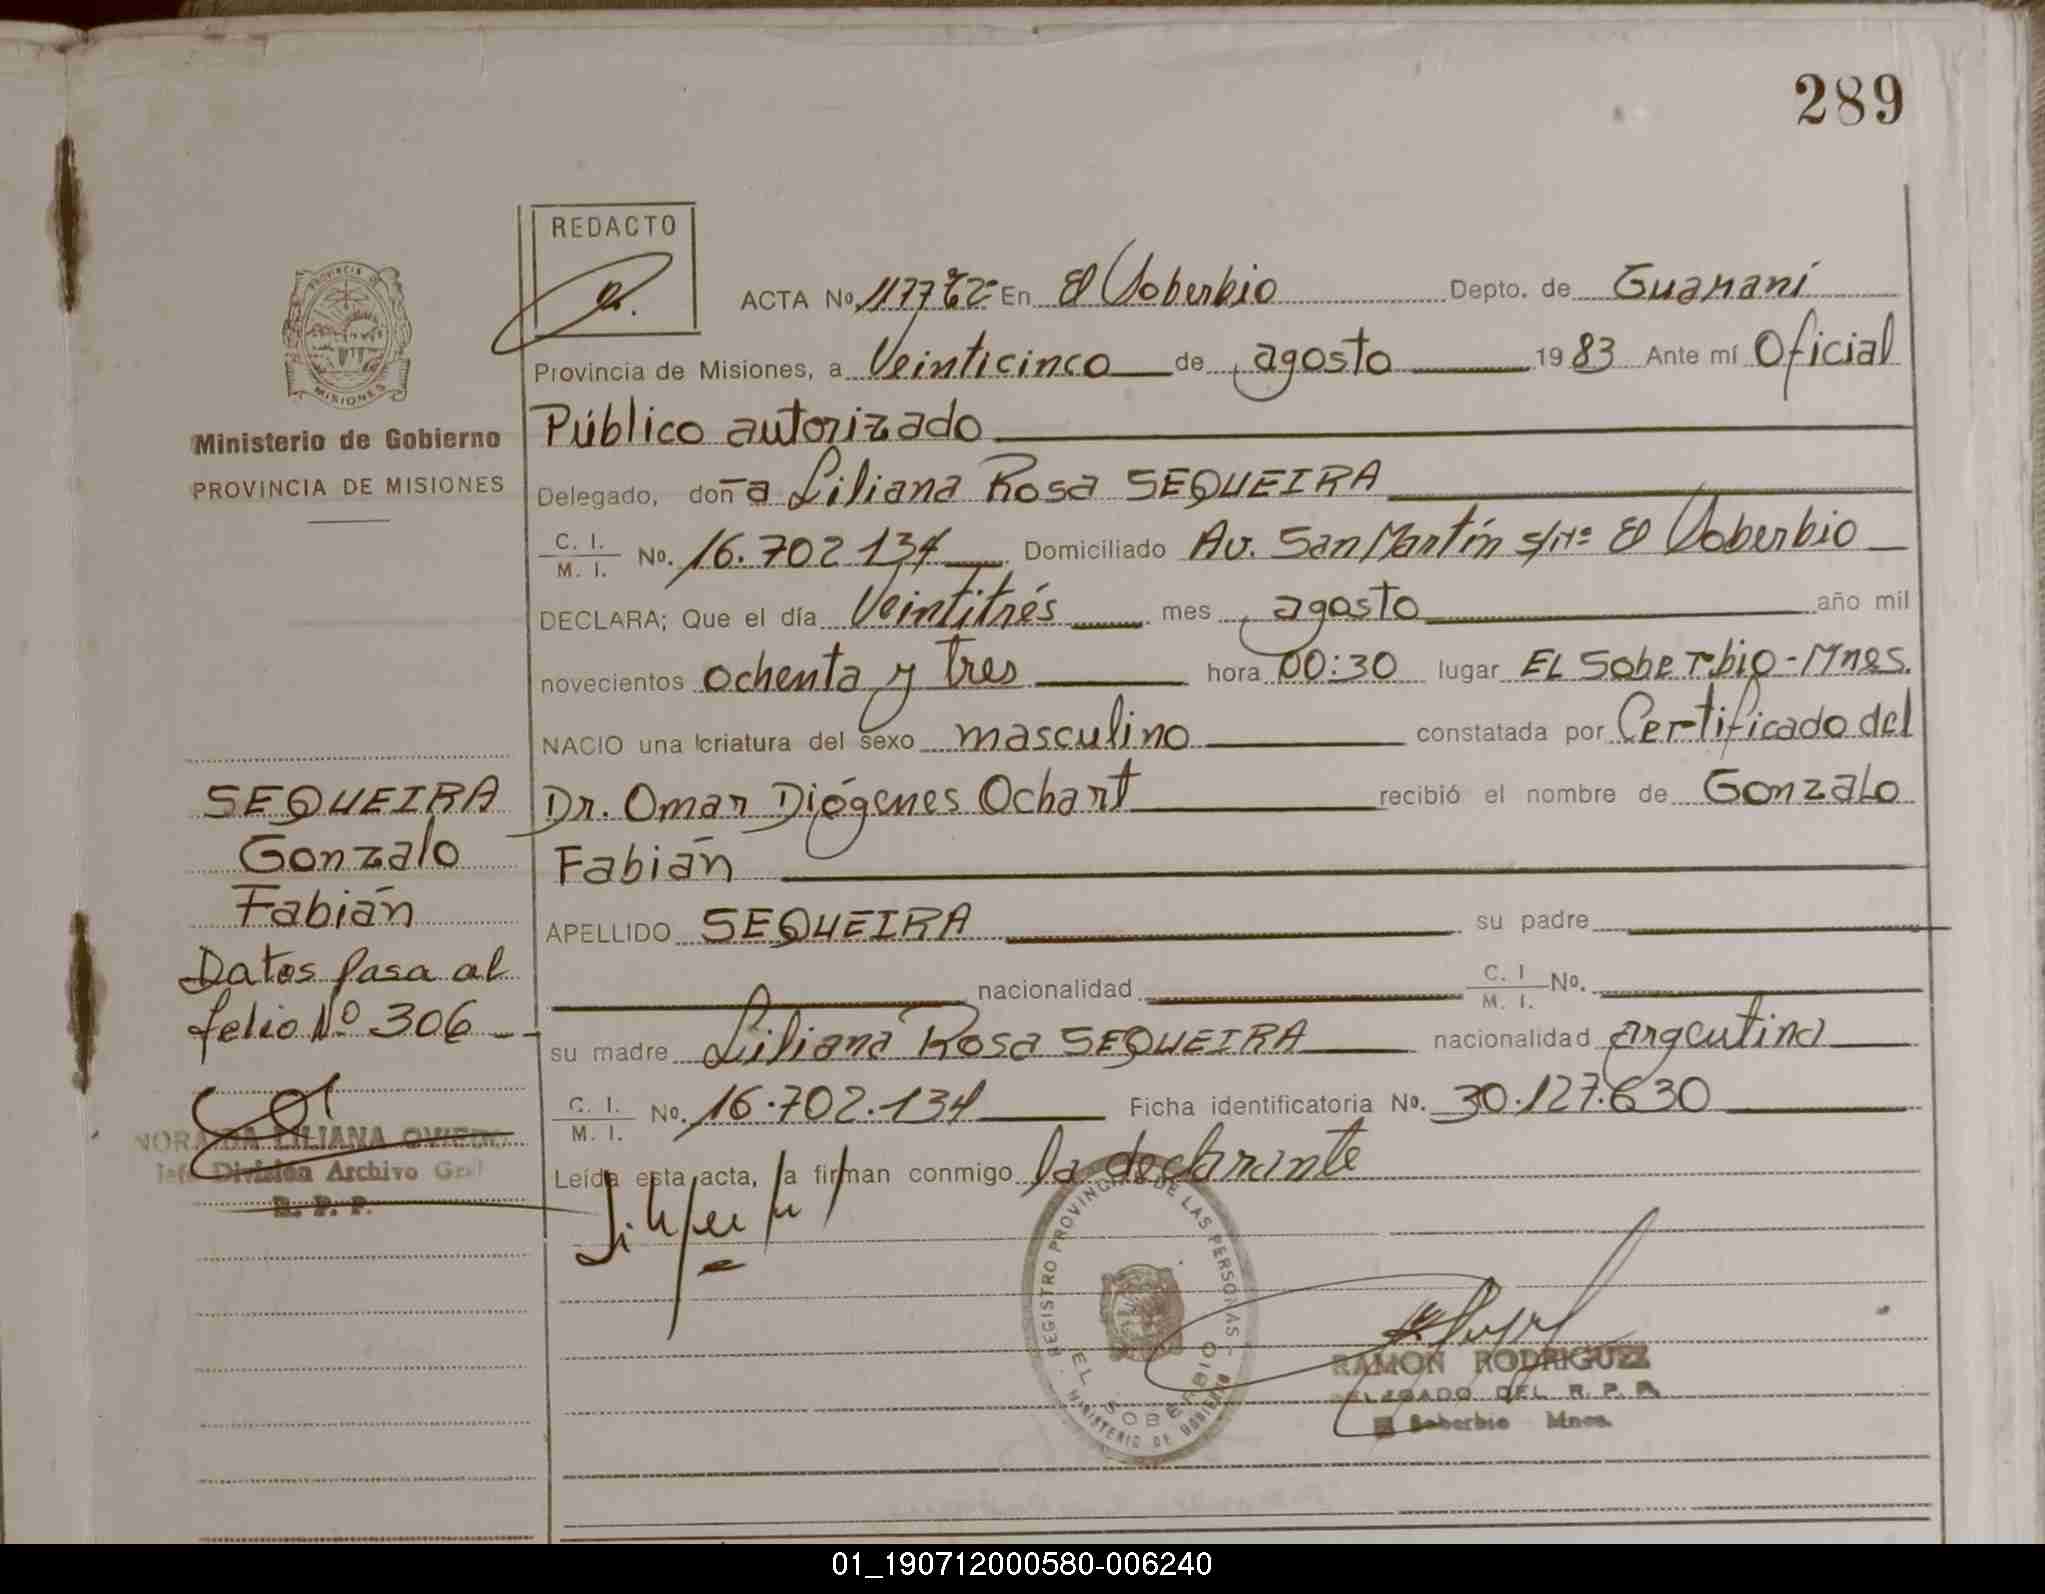 289
REDACTO
PROVINCIA DE MISIONES
Ministerio de Gobierno
PROVINCIA DE MISIONES
ACTA No. En El Soberbio Depto. de Guaraní
Provincia de Misiones, a Veinticinco de agosto 1983 Ante mí Oficial
Público autorizado
Delegado, don a Liliana Rosa SEQUEIRA
C. I. / M. I. No. 16.702.134 Domiciliado Av. San Martín s/Nº El Soberbio
DECLARA; Que el día Veintitrés mes agosto año mil
novecientos ochenta y tres hora 00:30 lugar EL Soberbio-Mnes.
NACIO una criatura del sexo masculino constatada por Certificado del
Dr. Omar Diógenes Ochart recibió el nombre de Gonzalo
Fabián
APELLIDO SEQUEIRA su padre
nacionalidad C. I / M. I. No.
su madre Liliana Rosa SEQUEIRA nacionalidad argentina
C. I. / M. I. No. 16.702.134 Ficha identificatoria No. 30.127.630
Leída esta acta, la firman conmigo la declarante
SEQUEIRA
Gonzalo
Fabián
Datos pasa al
folio Nº 306
LILIANA OVIEDO
Jefe División Archivo Gral
R. P. P.
REGISTRO PROVINCIAL DE LAS PERSONAS
MINISTERIO DE GOBIERNO
EL SOBERBIO
RAMON RODRIGUEZ
DELEGADO DEL R. P. P.
El Soberbio Mnes.
01_190712000580-006240